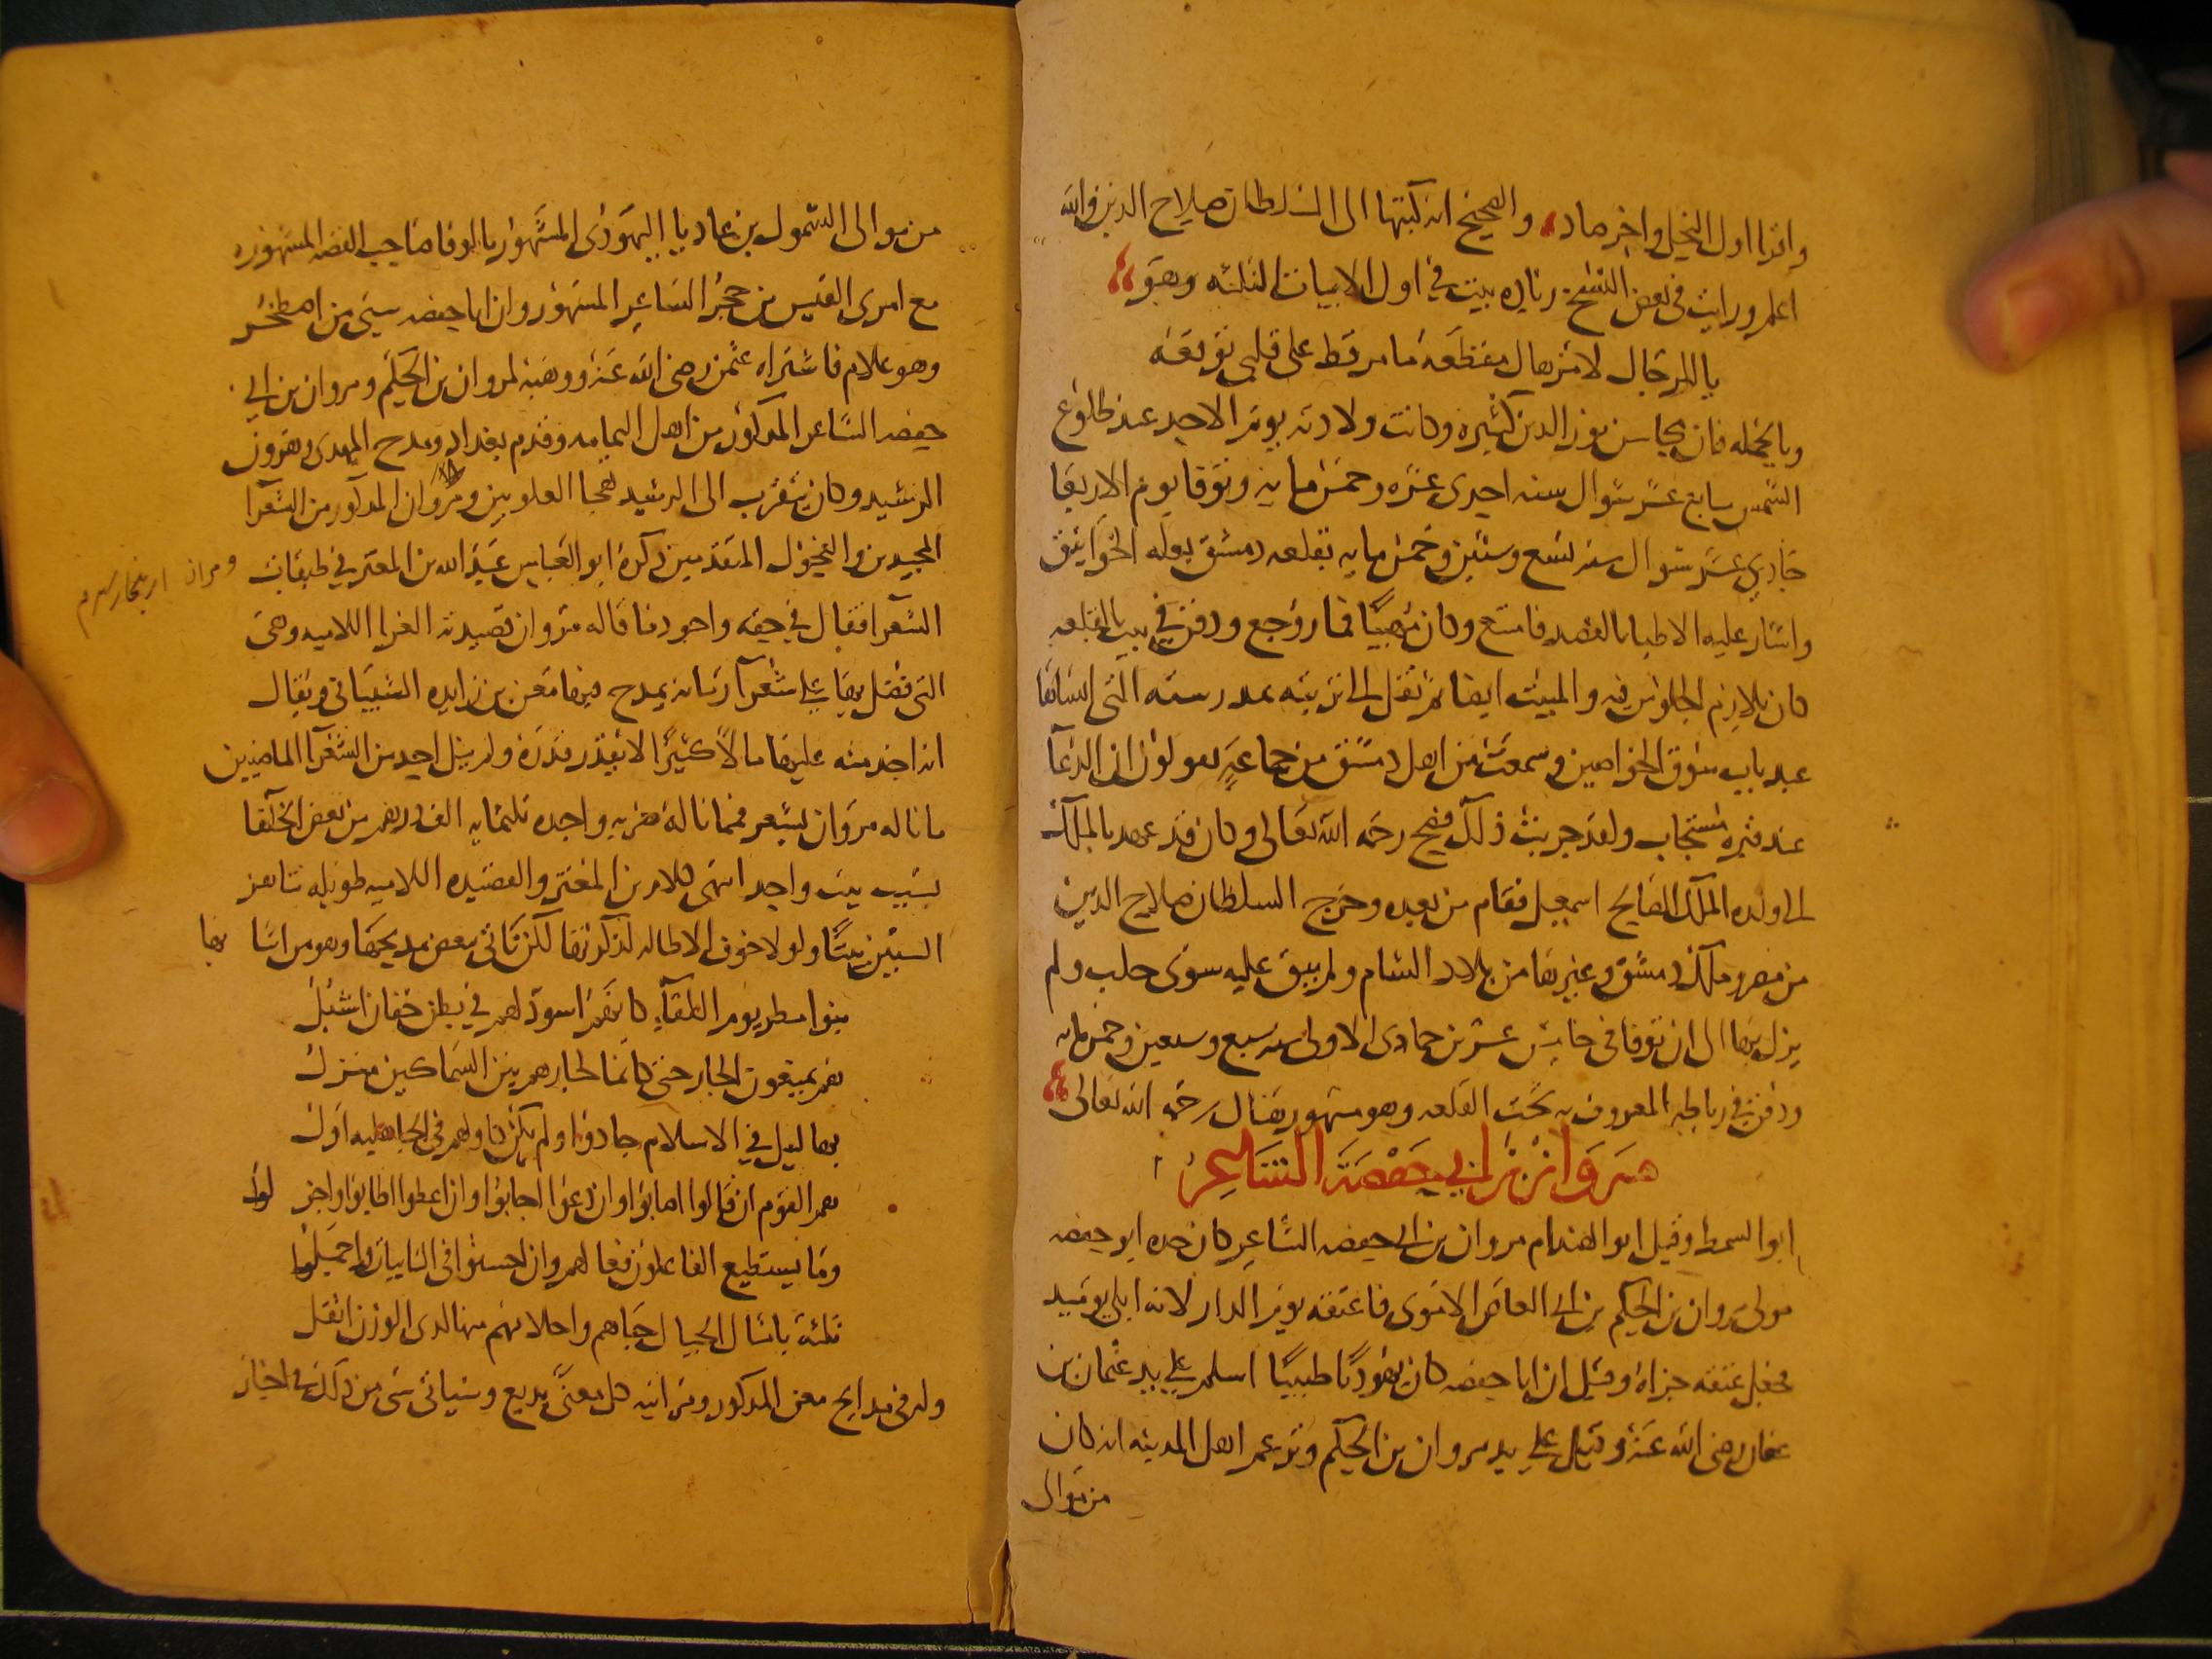 واترا اول النحل واخر صاد والصحيح انه كتبها الى السلطان صلاح الدين والله
اعلم ورايت في بعض النسخ زياده بيت في اول الابيات الثلثه وهو
يا للرجال لامر هال مفظعه ما مر قط على قلبي توقعه
وبالجمله فان محاسن نور الدين كثيره وكانت ولادته يوم الاحد عند طلوع
الشمس سابع عشر شوال سنه احدى عشره وخمس مايه وتوفا يوم الاربعا
حادي عشر شوال سنه تسع وستين وخمس مايه بقلعه دمشق بعله الخوانيق
واشار عليه الاطبا بالفصد فامتنع وكان مهيبًا فما روجع ودفن في بيت بالقلعه
كان يلازم الجلوس فيه والمبيت ايضا ثم نقل الى تربته بمدرسته التي انشاها
عند باب سوق الخواصين وسمعت من اهل دمشق من جماعةٍ يقولون ان الدعآ
عند قبره مستجاب ولقد جربت ذلك فصح رحمه الله تعالى وكان قد عهد بالملك
الى ولده الملك الصالح اسمعيل فقام من بعده وخرج السلطان صلاح الدين
من مصر وملك دمشق وغيرها من بلاد الشام ولم يبق عليه سوى حلب ولم
يزل بها الى ان توفا في خامس عشر من جمادى الاولى سنه سبع وسبعين وخمس مايه
ودفن في رباطه المعروف به تحت القلعه وهو مشهور هناك رحمه الله تعالى
مروان بن ابي حفصة الشاعر
ابو السمط وقيل ابو الهندام مروان بن ابي حفصه الشاعر كان جده ابو حفصه
مولى مروان بن الحكم بن ابي العاص الاموى فاعتقه يوم الدار لانه ابلى يوميد
فجعل عتقه جزاه وقيل ان ابا حفصه كان يهوديًا طبيبًا اسلم على يد عثمان بن
عفان رضى الله عنه وقيل على يد مروان بن الحكم وتزعم اهل المدينه انه كان
من موالى
من موالى السمول بن عاديا اليهودى المشهور بالوفا صاحب القصه المشهوره
مع امرى القيس بن حجر الشاعر المشهور وان ابا حفصه سبى من اصطخر
وهو غلام فاشتراه عثمن رضى الله عنه ووهبه لمروان بن الحكم ومروان بن ابي
حفصه الشاعر المذكور من اهل اليمامه وقدم بغداد ومدح المهدى وهرون
الرشيد وكان يتقرب الى الرشيد بهجا العلويين ومروان المذكور من الشعرا
المجيدين والفحول المتقدمين ذكره ابو العباس عبد الله بن المعتز في طبقات
ومران
الشعرآ فقال في حقه واجود ما قاله مروان قصيدته الغرا اللاميه وهى
التى فضل بها على شعرآ زمانه يمدح فيها معن بن زايده الشيبانى ويقال
انه اخذ منه عليها مالًا كثيرًا لا يقدر قدره ولم ينل احد من الشعرآ الماضيين
ما ناله مروان بشعره فمما ناله ضربه واحده ثلثمايه الف درهم من بعض الخلفا
بسبب بيت واحد انتهى كلام بن المعتز والقصيده اللاميه طويله تناهز
الستين بيتًا ولولا خوف الاطاله لذكرتها لكن ناتى ببعض مديحها وهو من اثنا ها
بنوا مطر يوم اللقآ كانهم اسود لهم في بطن خفان اشبل
هم يمنعون الجار حتى كانما لجارهم بين السماكين منزل
بهاليل في الاسلام سادوا ولم يكن كاولهم في الجاهليه اول
هم القوم ان قالوا اصابوا وان دعوا اجابوا وان اعطوا اطابوا واجز لوا
وما يستطيع الفاعلون فعالهم وان احسنوا في النايبات واجملوا
ثلثه بامثال الجبال حباهم واحلامهم منها لدى الوزن اثقل
وله في مدايح معن المذكور ومراثيه كل معنًى بديع وسياتى شى من ذلك في اخبار